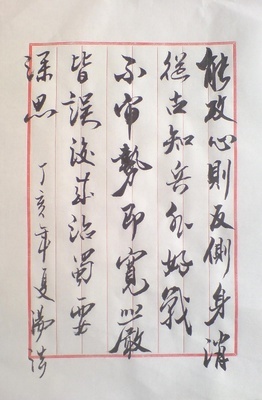 能攻心則反側身消
從古知兵非好戰
不審勢即寬嚴
皆誤後来治蜀要
深思
丁亥年夏